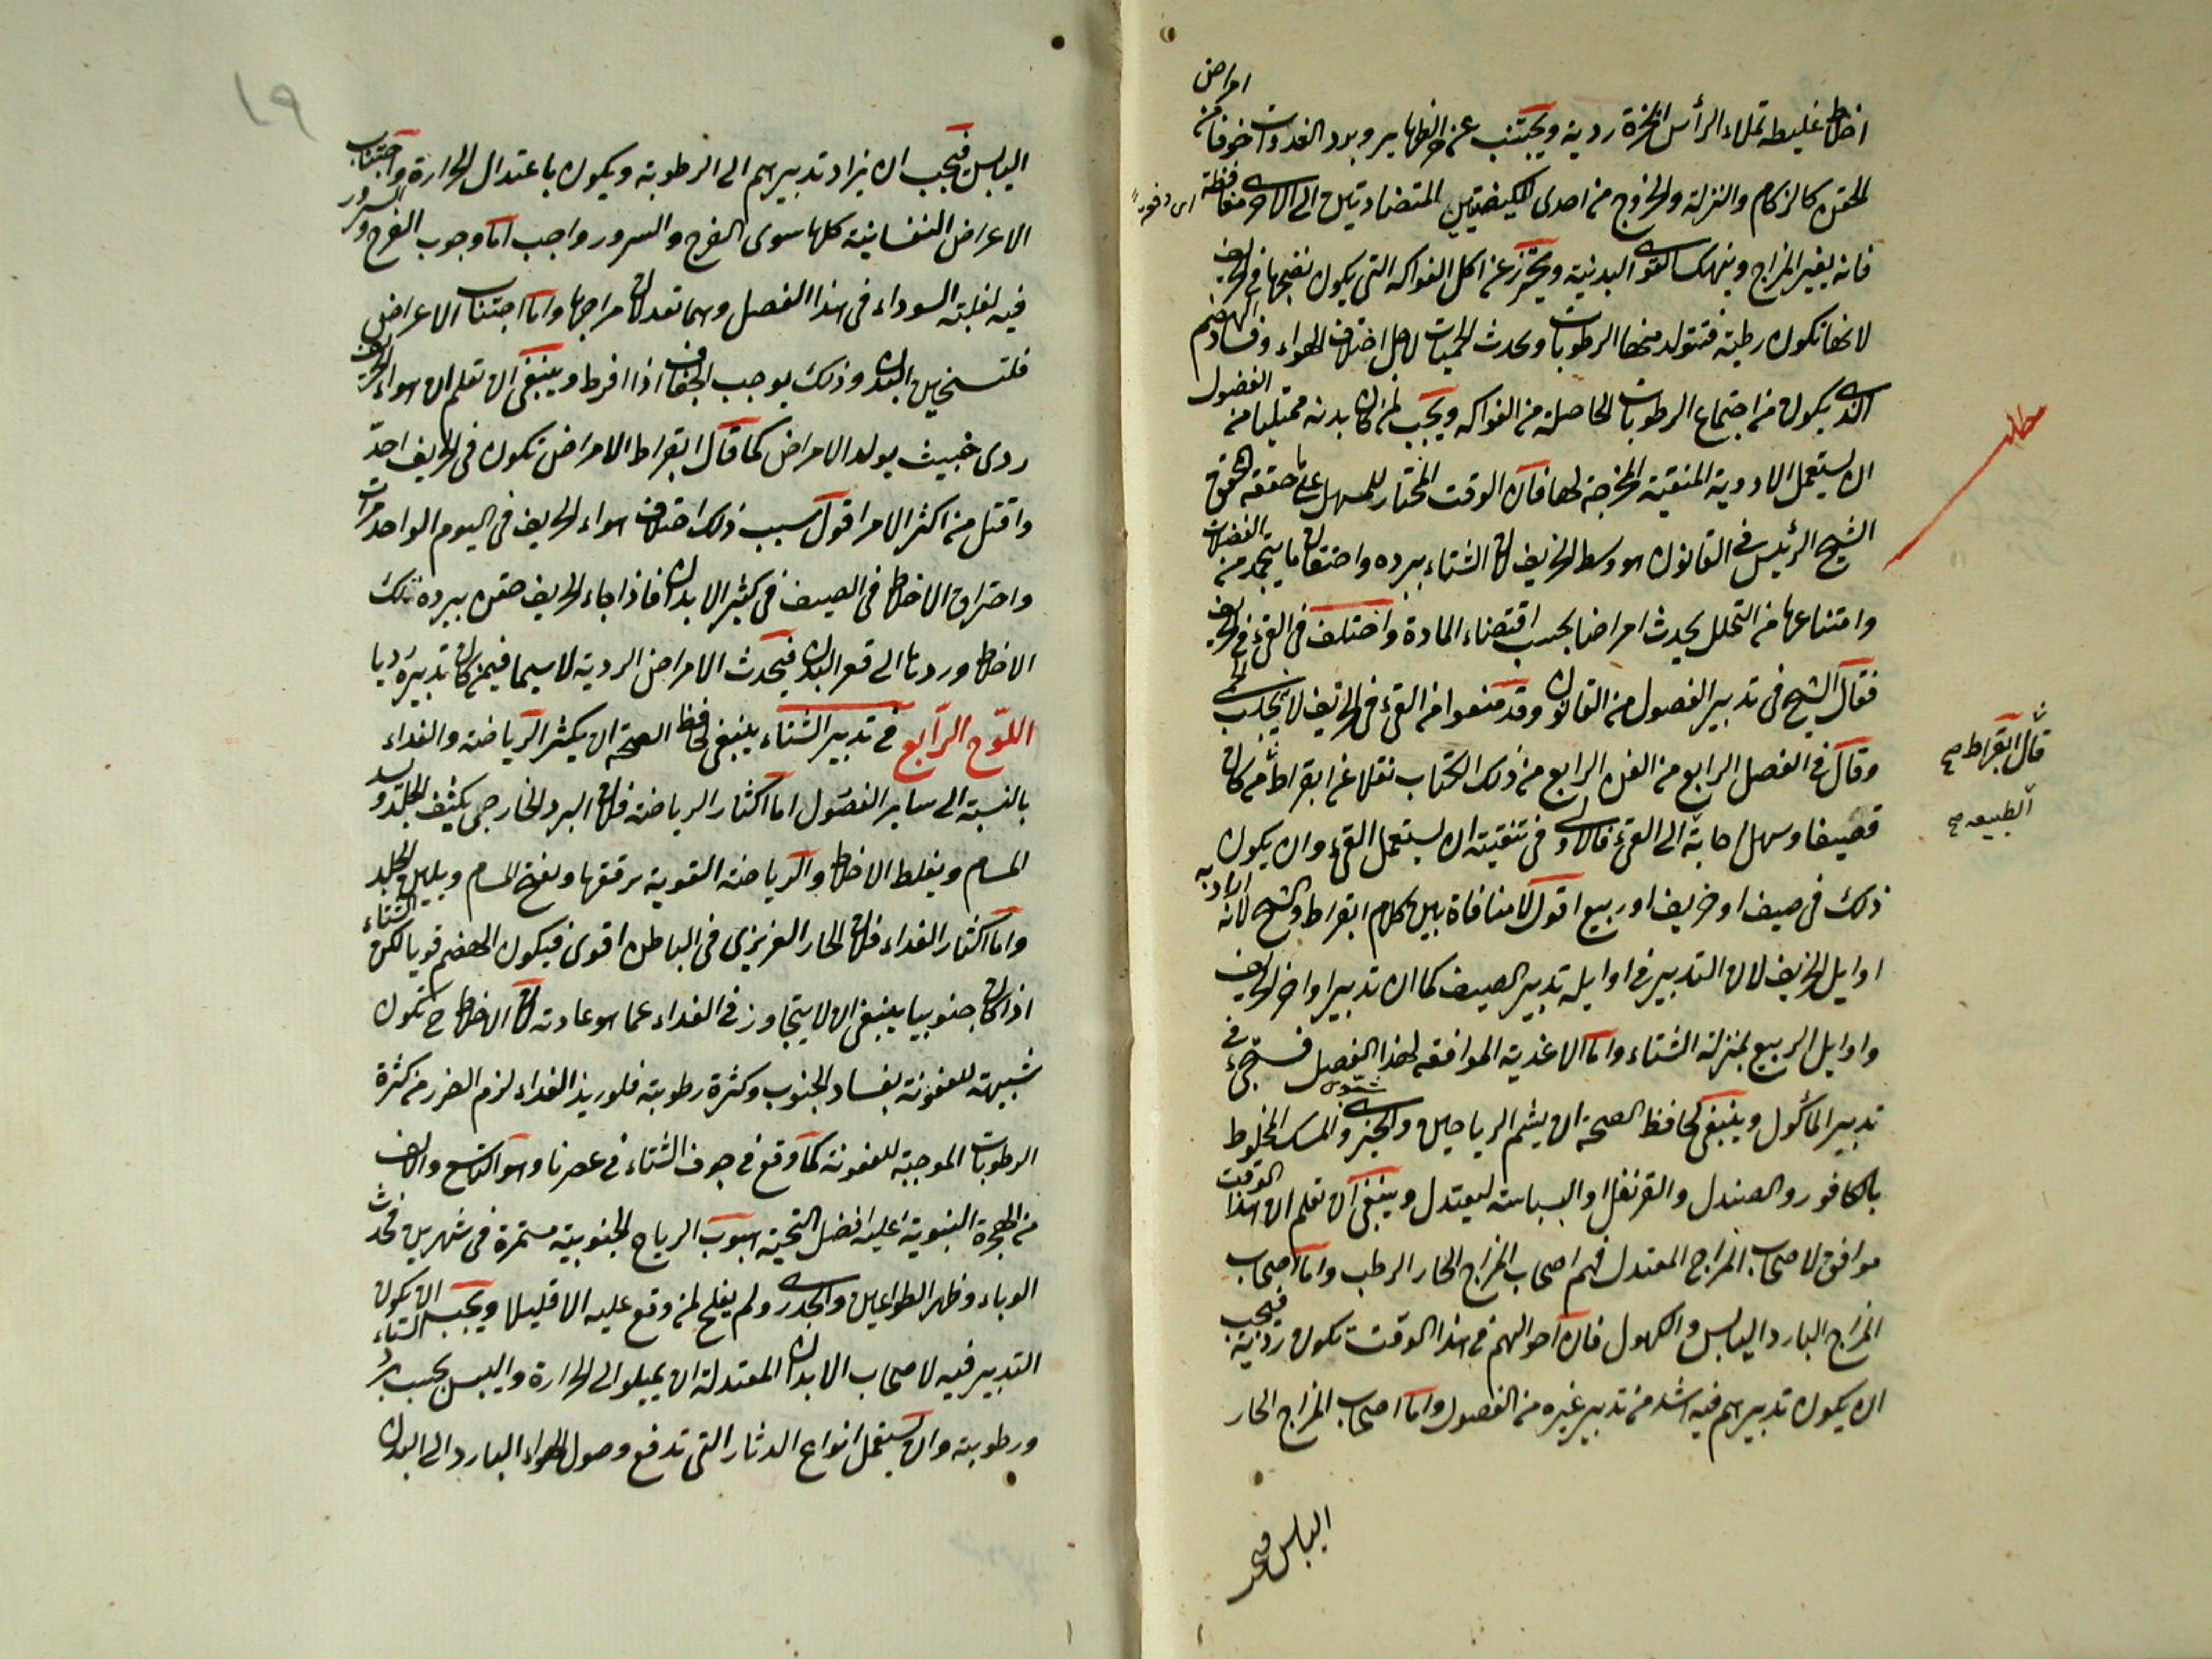 امراض
اخلاط غليظه تملاء الرأس ابخرة ردية ويجتنب عن حر الظهاير وبرد الغدوات خوفا من
المحقن كالزكام والنزلة والخروج من احدى الكيفيتين المتضادتين الى الاخرى مغافظة
فانه يغير المزاج وينهك القوى البدنية ويحترز عن اكل الفواكه التى يكون نضجها فى الخريف
لانها تكون رطبة فتتولد منها الرطوبات ويحدث الحميات لاجل اختلاف الهواء وفساد الهضم
الذى يكون من اجتماع الرطوبات الحاصلة من الفواكه ويجب لمن كان بدنه ممتليا من الفضول
ان يستعمل الادوية المنقية المخرجة لها فان الوقت المختار للمسهل على ما حققه المحقق
الشيخ الرئيس فى القانون هو وسط الخريف لان الشتاء ببرده واحتقان ما يتجمد من الفضلات
وامتناعها من التحلل يحدث امراضا بحسب اقتضاء المادة واختلف فى القئ فى الخريف
فقال الشيخ فى تدبير الفصول من القانون وقد منعوا من القئ فى الخريف لانه يجلب الحمى
وقال فى الفصل الرابع من الفن الرابع من ذلك الكتاب نقلا عن ابقراط من كان
قضيفا وسهل اجابة الى القئ فالاولى فى تنقيته ان يستعمل القئ وان يكون
ذلك فى صيف او خريف او ربيع اقول لا منافاة بين كلام ابقراط والشيخ لانه اراد به
اوايل الخريف لان التدبير فى اوايله تدبير الصيف كما ان تدبير اواخر الخريف
واوايل الربيع بمنزلة الشتاء واما الاغذية الموافقه لهذا الفصل فستجئ فى
تدبير المأكول وينبغى لحافظ الصحة ان يشم الرياحين والخيرى والمسك المخلوط
بالكافور والصندل والقرنفل او البسباسة ليعتدل وينبغى ان تعلم ان هذا الوقت
موافق لاصحاب المزاج المعتدل فهم اصحاب المزاج الحار الرطب واما اصحاب
المزاج البارد اليابس والكهول فان احوالهم فى هذا الوقت تكون ردية فيجب
ان يكون تدبيرهم فيه اشد من تدبير غيره من الفصول واما اصحاب المزاج الحار
اليابس فيجب
مطلب
قال ابقراط صح
الطبيعه صح
١٩
اليابس فيجب ان يزاد تدبيرهم الى الرطوبة ويكون باعتدال الحرارة واجتناب
الاعراض النفسانية كلها سوى الفرح والسرور واجب اما وجوب الفرح والسرور
فيه لغلبة السوداء فى هذا الفصل وهما تعدلان مزاجها واما اجتناب الاعراض
فلتسخين البدن وذلك يوجب الجفاف اذا افرط وينبغى ان تعلم ان هواء الخريف
ردى خبيث يولد الامراض كما قال ابقراط الامراض تكون فى الخريف احد
واقتل من اكثر الامر اقول سبب ذلك اختلاف هواء الخريف فى اليوم الواحد مرات
واحتراق الاخلاط فى الصيف فى كثير الابدان فاذا جاء الخريف حقن ببرده تلك
الاخلاط وردها الى قعر البدن فيحدث الامراض الردية لاسيما فيمن كان تدبيره رديا
اللوح الرابع فى تدبير الشتاء ينبغى لحافظ الصحة ان يكثر الرياضة والغداء
بالنسبة الى ساير الفصول اما اكثار الرياضة فلان البرد الخارجى يكثف الجلد ويسد
المسام ويغلط الاخلاط والرياضة القوية ترققها وتفتح المسام ويلين الجلد
واما اكثار الغداء فلان الحار الغريزى فى الباطن اقوى فيكون الهضم قويا لكن الشتاء
اذا كان جنوبيا ينبغى ان لا يتجاوز فى الغداء عما هو عادته لان الاخلاط ح تكون
شبيهة للعفونة بفساد الجنوب وكثرة رطوبته فلو زيد الغداء لزم الضرر من كثرة
الرطوبات الموجبة للعفونة كما وقع فى جوف الشتاء فى عصرنا وهو التاسع والالف
من الهجرة النبوية عليه افضل التحية هبوب الرياح الجنوبية مستمرة فى شهرين فحدث
الوباء وظهر الطواعين والجدرى ولم يفلح لمن وقع عليه الا قليلا ويجب ان يكون
التدبير فيه لاصحاب الابدان المعتدلة ان يميلوا الى الحرارة واليبس بحسب برد الشتاء
ورطوبته وان يستعمل انواع الدثار التى تدفع وصول الهواء البارد الى البدن